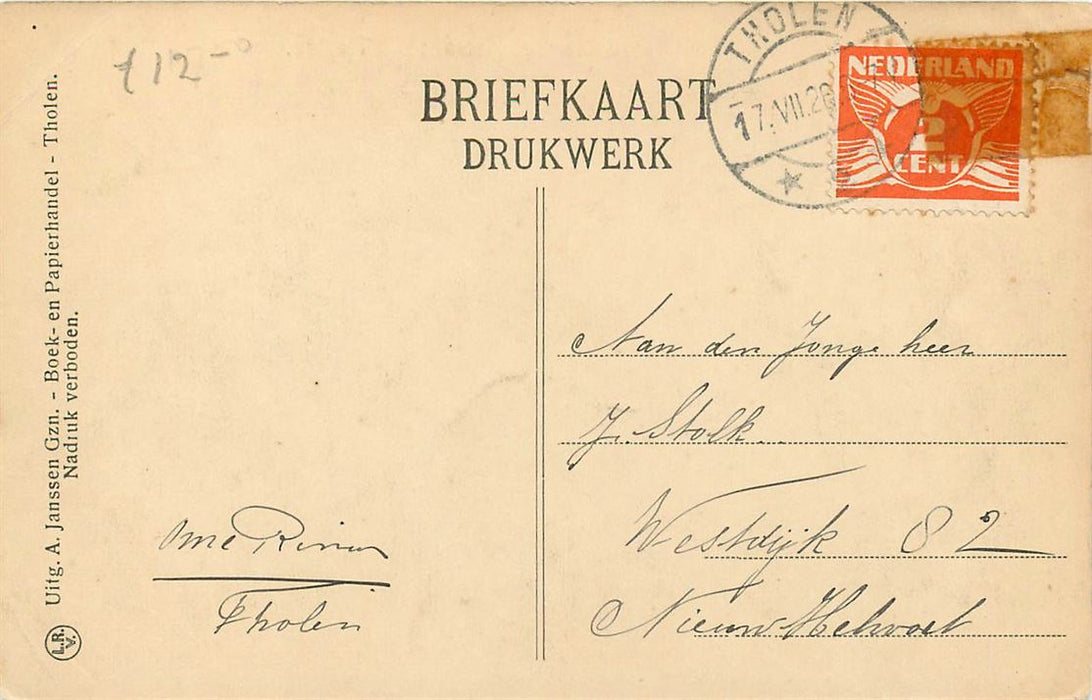 ƒ 12-
BRIEFKAART
DRUKWERK
THOLEN
17.VII.26
NEDERLAND
2
CENT
Uitg. A. Janssen Gzn. - Boek- en Papierhandel - Tholen.
Nadruk verboden.
L.R.
V.
Aan den Jonge heer
J. Stolk
Westdijk 82
Nieuw Helvoet
Ome Rinus
Tholen